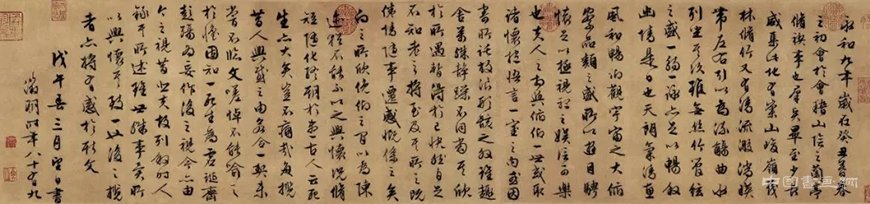 永和九年歲在癸丑暮春
之初會於會稽山陰之蘭亭
脩禊事也羣賢畢至少長
咸集此地有崇山峻嶺茂
林脩竹又有清流激湍映
帶左右引以為流觴曲水
列坐其次雖無絲竹管絃
之盛一觴一詠亦足以暢敘
幽情是日也天朗氣清惠
風和暢仰觀宇宙之大俯
察品類之盛所以遊目騁
懷足以極視聽之娛信可樂
也夫人之相與俯仰一世或取
諸懷抱悟言一室之內或因
寄所託放浪形骸之外雖趣
舍萬殊靜躁不同當其欣
於所遇暫得於己快然自足
不知老之將至及其所之既
倦情隨事遷感慨係之矣
向之所欣俛仰之間以為陳
迹猶不能不以之興懷況脩
短隨化終期於盡古人云死
生亦大矣豈不痛哉每攬
昔人興感之由若合一契未
嘗不臨文嗟悼不能喻之
於懷固知一死生為虛誕齊
彭殤為妄作後之視今亦由
今之視昔悲夫故列敘時人
錄其所述雖世殊事異所
以興懷其致一也後之攬
者亦將有感於斯文
戊午春三月望日書
徵明時年八十有九